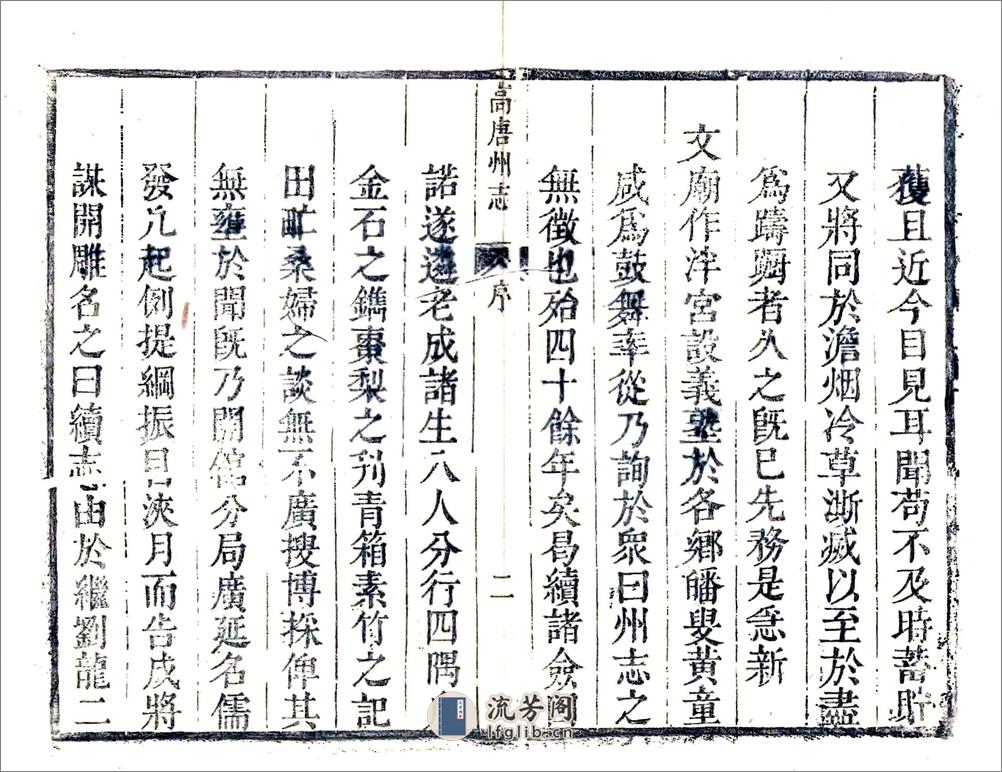 且近今目見耳聞苟不及時蓄貯
又將同於澹烟冷草澌滅以至於盡
爲躊躇者久之既巳先務是急新
文廟作泮宮設義塾於各鄉皤叟黃童
咸爲鼓舞率從乃詢於衆曰州志之
無徵也殆四十餘年矣曷續諸僉曰
高唐州志
序
二
諾遂遴老成諸生八人分行四隅
金石之鐫棗梨之刋青箱素竹之記
田畯桑婦之談無不廣搜博採俾其
無壅於聞既乃開舘分局廣延名儒
發凡起例提綱振目浹月而告成將
謀開雕名之曰續志由於繼劉龍二
流芳阁
lfglib.cn